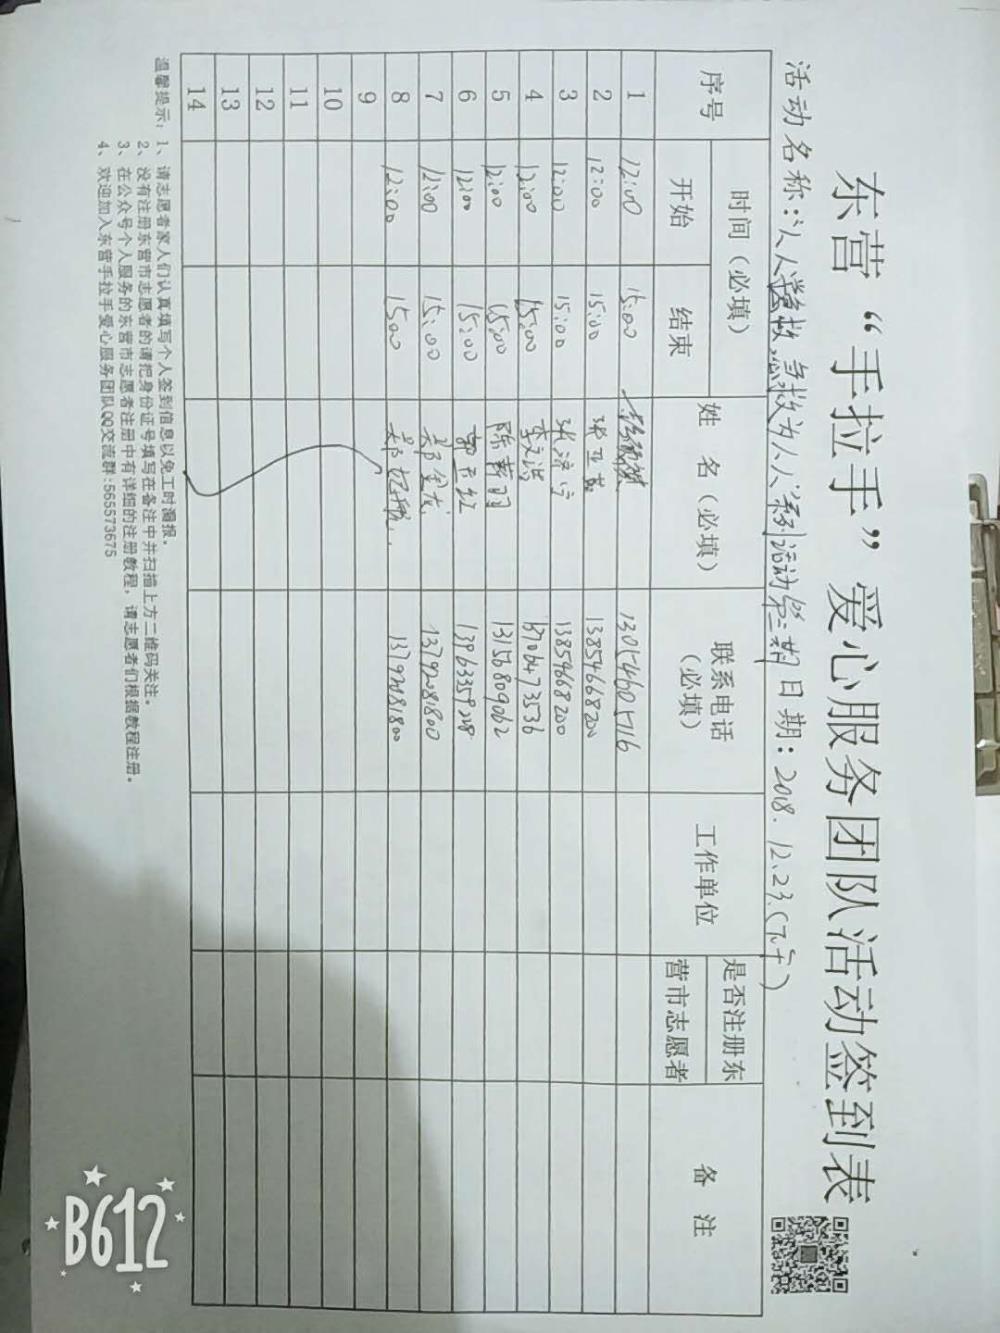 东营“手拉手”爱心服务团队活动签到表
活动名称：“人人学救 急救为人人”系列活动第二期 日期：2018.12.23.(下午)
序号 时间（必填） 姓 名（必填） 联系电话（必填） 工作单位 是否注册东营市志愿者 备 注
开始 结束
1 12:00 15:00 13054605716
2 12:00 15:00 13854668200
3 12:00 15:00 张济宁 13854668200
4 12:00 15:00 李文浩 13706473536
5 12:00 15:00 陈莉羽 13156809062
6 12:00 15:00 郭玉红
7 12:00 15:00 13792081800
8 12:00 1500 13792081800
9
10
11
12
13
14
温馨提示：1、请志愿者家人们认真填写个人签到信息以免工时漏报。
2、没有注册东营市志愿者的请把身份证号填写在备注中并扫描上方二维码关注。
3、在公众号个人服务的东营市志愿者注册中有详细的注册教程，请志愿者们根据教程注册。
4、欢迎加入东营手拉手爱心服务团队QQ交流群：565573675
B612